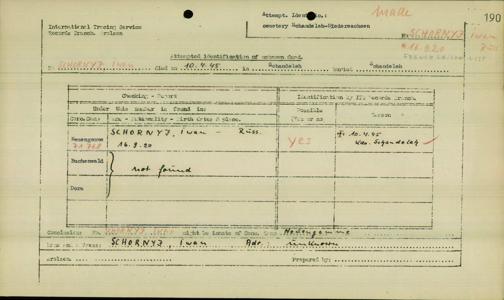 190
International Tracing Service
Records Branch. Arolsen
Attempt. Ident. No.:
cemetery Schandelah-Niedersachsen
made
SCHORNYJ Iwan
16.9.20 Russ
Attempted identification of unknown dead.
SCHORNYJ, Iwan died on 10.4.45 in Schandelah buried Schandelah
Checking - Report
Identification by ITS Records Branch.
Under this number is found in:
Possible
Yes or no
Reason
Conc.Camp
Name - Nationality - Birth date & place.
Neuengamme
SCHORNYJ, Iwan - Russ.
16.9.20
yes
+ 10.4.45
Kdo. Schandelah
Buchenwald
not found
Dora
Conclusion: No. might be inmate of Conc. Camp Neuengamme
SCHORNYJ, Iwan Adr.: unknown
Arolsen Prepared by: